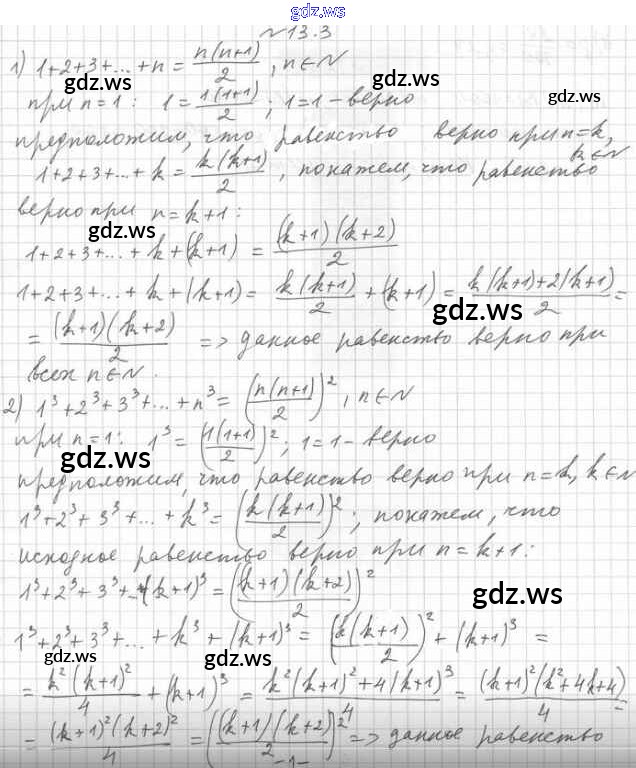 gdz.ru
№13.3
1) 1+2+3+...+n = n(n+1)/2, n∈N
при n=1: 1 = 1(1+1)/2; 1=1 - верно
gdz.ru gdz.ru
предположим, что равенство верно при n=k,
1+2+3+...+k = k(k+1)/2, покажем, что равенство k∈N
gdz.ru gdz.ru
верно при n=k+1:
gdz.ru
1+2+3+...+k+(k+1) = (k+1)(k+2)/2
1+2+3+...+k+(k+1) = k(k+1)/2 + (k+1) = k(k+1)+2(k+1)/2 =
gdz.ru
= (k+1)(k+2)/2 => данное равенство верно при
всех n∈N.
2) 1³+2³+3³+...+n³ = (n(n+1)/2)², n∈N
при n=1: 1³ = (1(1+1)/2)²; 1=1 - верно
gdz.ru gdz.ru
предположим, что равенство верно при n=k, k∈N
1³+2³+3³+...+k³ = (k(k+1)/2)²; покажем, что
исходное равенство верно при n=k+1:
1³+2³+3³+...+(k+1)³ = ((k+1)(k+2)/2)²
gdz.ru
1³+2³+3³+...+k³+(k+1)³ = (k(k+1)/2)² + (k+1)³ =
gdz.ru gdz.ru
= k²(k+1)²/4 + (k+1)³ = k²(k+1)²+4(k+1)³/4 = (k+1)²(k²+4k+4)/4 =
= (k+1)²(k+2)²/4 = ((k+1)(k+2)/2)² => данное равенство
-1-